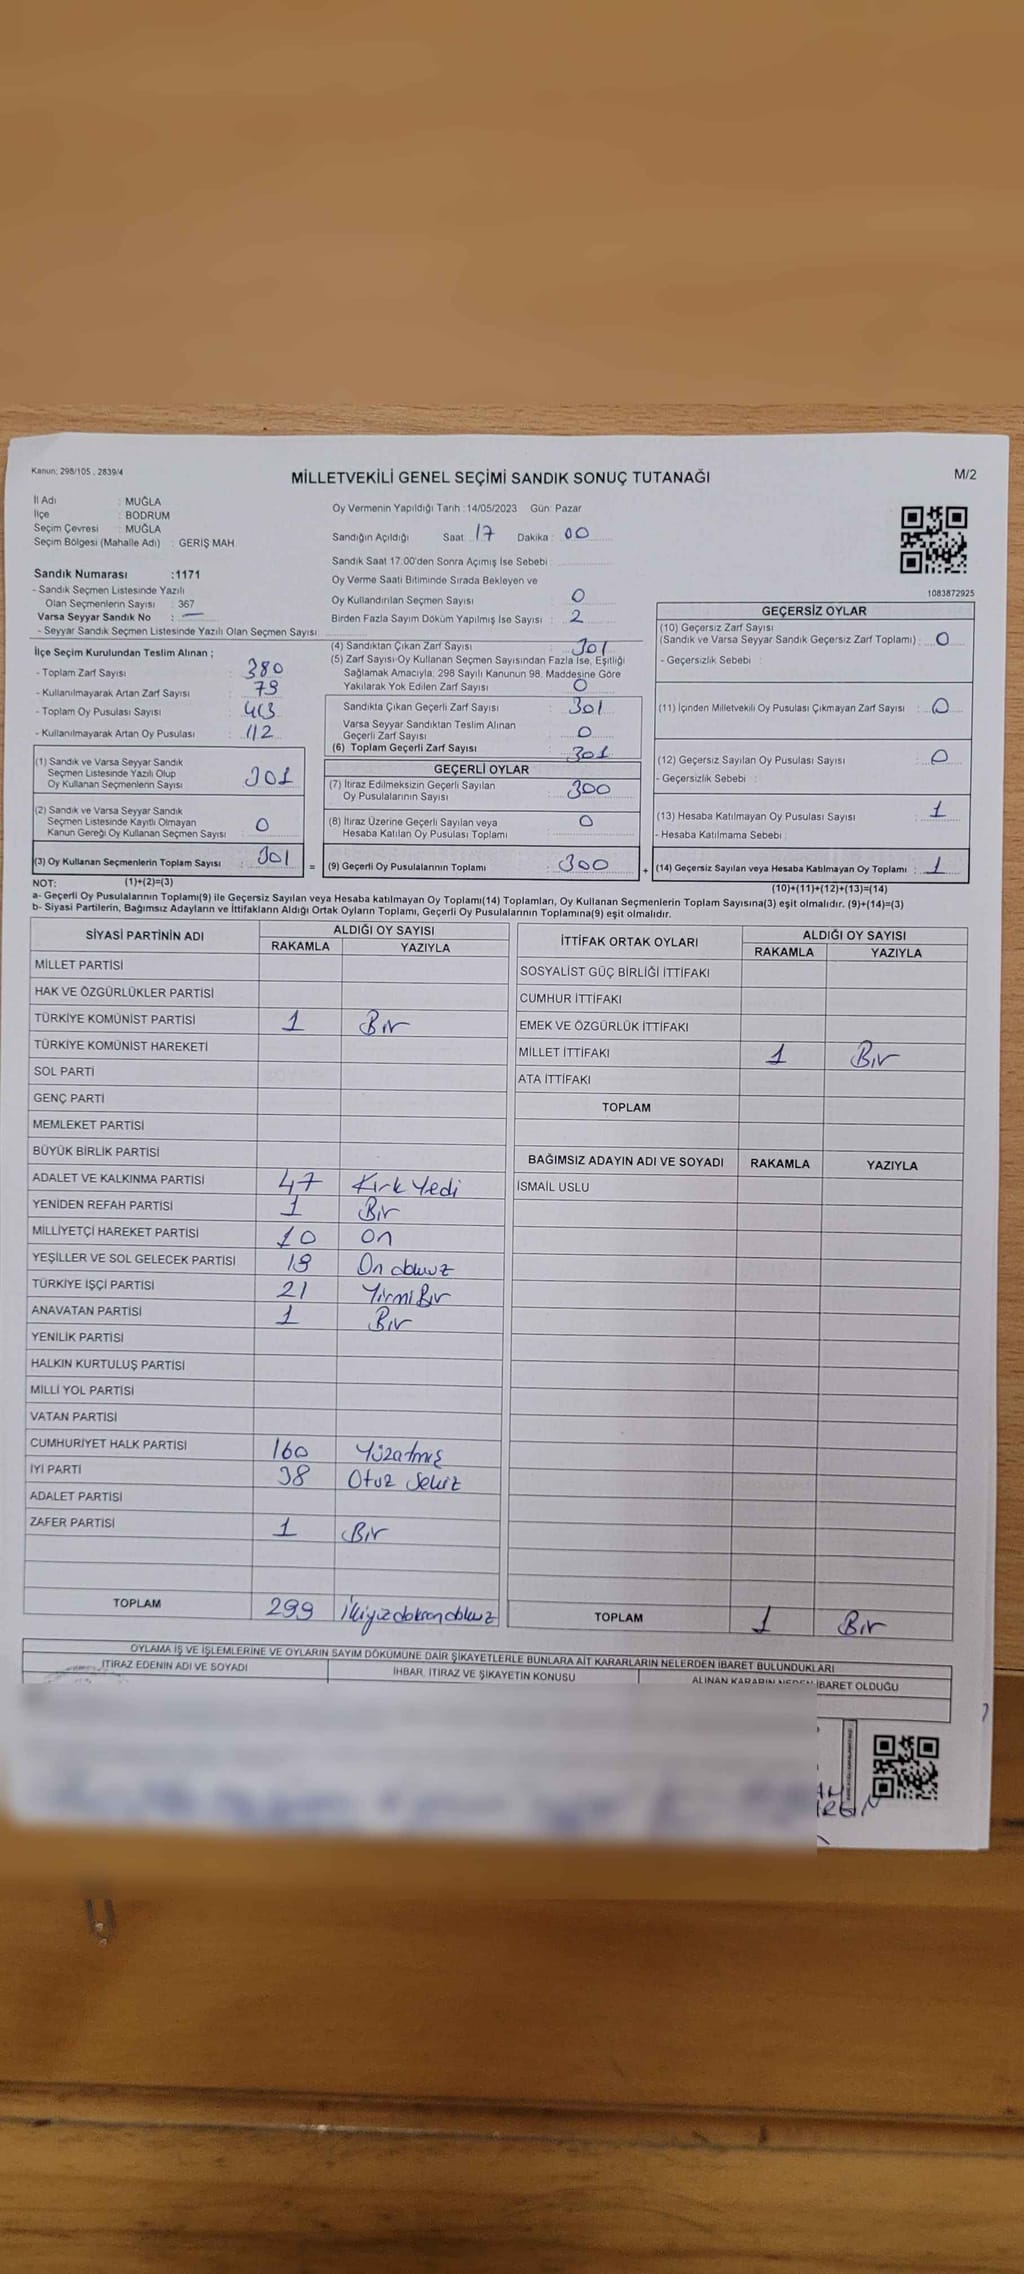 Kanun; 298/105 , 2839/4
MİLLETVEKİLİ GENEL SEÇİMİ SANDIK SONUÇ TUTANAĞI
M/2
İl Adı : MUĞLA
İlçe : BODRUM
Seçim Çevresi : MUĞLA
Seçim Bölgesi (Mahalle Adı) : GERİŞ MAH.
Oy Vermenin Yapıldığı Tarih :14/05/2023 Gün: Pazar
Sandığın Açıldığı Saat : 17 Dakika : 00
Sandık Saat 17.00'den Sonra Açımış İse Sebebi :
Oy Verme Saati Bitiminde Sırada Bekleyen ve
Oy Kullandırılan Seçmen Sayısı : 0
Birden Fazla Sayım Döküm Yapılmış İse Sayısı : 2
1083872925
Sandık Numarası :1171
- Sandık Seçmen Listesinde Yazılı
Olan Seçmenlerin Sayısı : 367
Varsa Seyyar Sandık No : —
- Seyyar Sandık Seçmen Listesinde Yazılı Olan Seçmen Sayısı
İlçe Seçim Kurulundan Teslim Alınan ;
- Toplam Zarf Sayısı : 380
- Kullanılmayarak Artan Zarf Sayısı : 79
- Toplam Oy Pusulası Sayısı : 413
- Kullanılmayarak Artan Oy Pusulası : 112
(1) Sandık ve Varsa Seyyar Sandık
Seçmen Listesinde Yazılı Olup
Oy Kullanan Seçmenlerin Sayısı : 301
(2) Sandık ve Varsa Seyyar Sandık
Seçmen Listesinde Kayıtlı Olmayan
Kanun Gereği Oy Kullanan Seçmen Sayısı : 0
(3) Oy Kullanan Seçmenlerin Toplam Sayısı : 301
(1)+(2)=(3)
(4) Sandıktan Çıkan Zarf Sayısı : 301
(5) Zarf Sayısı Oy Kullanan Seçmen Sayısından Fazla İse, Eşitliği
Sağlamak Amacıyla, 298 Sayılı Kanunun 98. Maddesine Göre
Yakılarak Yok Edilen Zarf Sayısı : 0
Sandıkta Çıkan Geçerli Zarf Sayısı : 301
Varsa Seyyar Sandıktan Teslim Alınan
Geçerli Zarf Sayısı : 0
(6) Toplam Geçerli Zarf Sayısı : 301
GEÇERLİ OYLAR
(7) İtiraz Edilmeksizin Geçerli Sayılan
Oy Pusulalarının Sayısı : 300
(8) İtiraz Üzerine Geçerli Sayılan veya
Hesaba Katılan Oy Pusulası Toplamı : 0
= (9) Geçerli Oy Pusulalarının Toplamı : 300
GEÇERSİZ OYLAR
(10) Geçersiz Zarf Sayısı
(Sandık ve Varsa Seyyar Sandık Geçersiz Zarf Toplamı) : 0
- Geçersizlik Sebebi :
(11) İçinden Milletvekili Oy Pusulası Çıkmayan Zarf Sayısı : 0
(12) Geçersiz Sayılan Oy Pusulası Sayısı : 0
- Geçersizlik Sebebi :
(13) Hesaba Katılmayan Oy Pusulası Sayısı : 1
- Hesaba Katılmama Sebebi :
+ (14) Geçersiz Sayılan veya Hesaba Katılmayan Oy Toplamı : 1
(10)+(11)+(12)+(13)=(14)
NOT:
a- Geçerli Oy Pusulalarının Toplamı(9) ile Geçersiz Sayılan veya Hesaba katılmayan Oy Toplamı(14) Toplamları, Oy Kullanan Seçmenlerin Toplam Sayısına(3) eşit olmalıdır. (9)+(14)=(3)
b- Siyasi Partilerin, Bağımsız Adayların ve İttifakların Aldığı Ortak Oyların Toplamı, Geçerli Oy Pusulalarının Toplamına(9) eşit olmalıdır.
SİYASİ PARTİNİN ADI ALDIĞI OY SAYISI
RAKAMLA YAZIYLA
MİLLET PARTİSİ
HAK VE ÖZGÜRLÜKLER PARTİSİ
TÜRKİYE KOMÜNİST PARTİSİ 1 Bir
TÜRKİYE KOMÜNİST HAREKETİ
SOL PARTİ
GENÇ PARTİ
MEMLEKET PARTİSİ
BÜYÜK BİRLİK PARTİSİ
ADALET VE KALKINMA PARTİSİ 47 Kırk Yedi
YENİDEN REFAH PARTİSİ 1 Bir
MİLLİYETÇİ HAREKET PARTİSİ 10 On
YEŞİLLER VE SOL GELECEK PARTİSİ 19 On dokuz
TÜRKİYE İŞÇİ PARTİSİ 21 Yirmi Bir
ANAVATAN PARTİSİ 1 Bir
YENİLİK PARTİSİ
HALKIN KURTULUŞ PARTİSİ
MİLLİ YOL PARTİSİ
VATAN PARTİSİ
CUMHURİYET HALK PARTİSİ 160 Yüzatmış
İYİ PARTİ 38 Otuz Sekiz
ADALET PARTİSİ
ZAFER PARTİSİ 1 Bir
TOPLAM 299 ikiyüzdoksandokuz
İTTİFAK ORTAK OYLARI ALDIĞI OY SAYISI
RAKAMLA YAZIYLA
SOSYALİST GÜÇ BİRLİĞİ İTTİFAKI
CUMHUR İTTİFAKI
EMEK VE ÖZGÜRLÜK İTTİFAKI
MİLLET İTTİFAKI 1 Bir
ATA İTTİFAKI
TOPLAM
BAĞIMSIZ ADAYIN ADI VE SOYADI RAKAMLA YAZIYLA
İSMAİL USLU
TOPLAM 1 Bir
OYLAMA İŞ VE İŞLEMLERİNE VE OYLARIN SAYIM DÖKÜMÜNE DAİR ŞİKAYETLERLE BUNLARA AİT KARARLARIN NELERDEN İBARET BULUNDUKLARI
İTİRAZ EDENİN ADI VE SOYADI İHBAR, İTİRAZ VE ŞİKAYETİN KONUSU ALINAN KARARIN NEDEN İBARET OLDUĞU